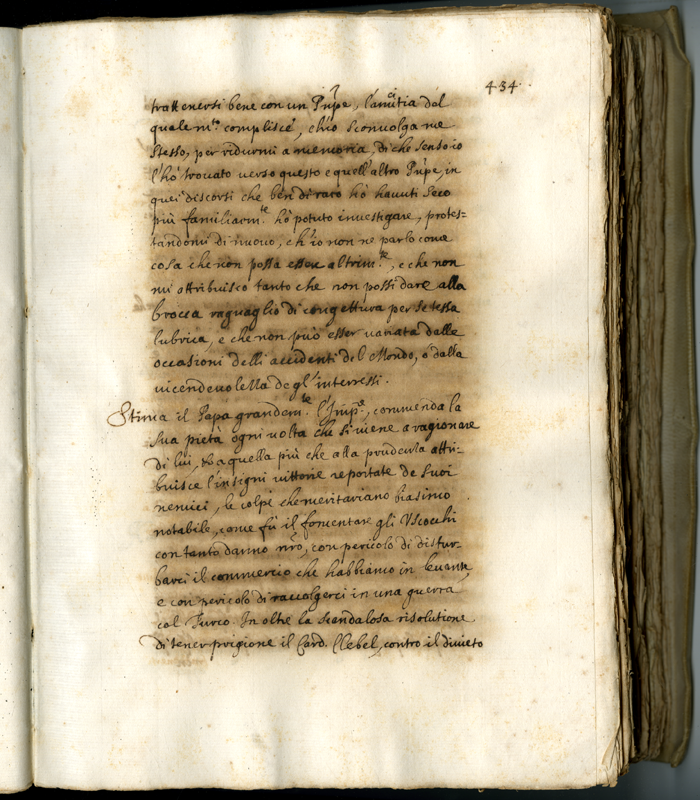 434
trattenersi bene con un Pnpe, l'amicitia del
quale mto complisce, ch'io sconvolga me
stesso, per ridurmi a memoria, di che senso io
l'hò trovato verso questo e quell'altro Pnpe, in
quei discorsi che ben di raro hò havuti seco
più familiarmte hò potuto investigare, protes=
tandomi di nuovo, ch'io non ne parlo come
cosa che non possa essere altrimte, e che non
mi attribuisco tanto che non possi dare alla
brocca raguaglio di congettura per se stessa
lubrica, e che non può esser variata dalle
occasioni delli accidenti del Mondo, ò dalla
vicendevolezza degl'interressi.
Stima il Papa grandemte l'Impre, commenda la
sua pietà ogni volta che si viene a ragionare
di lui, et a quella più che alla prudenza attri-
buisce l'insigni vittorie reportate de suoi
nemici, le colpe che meritariano biasimo
notabile, come fù il fomentare gli Uscocchi
con tanto danno nro, con pericolo di distur-
barci il commercio che habbiamo in levante
e con pericolo di raccolgerci in una guerra
col Turco. In oltre la scandalosa risolutione
di tener prigione il Card. Clebel, contro il divieto